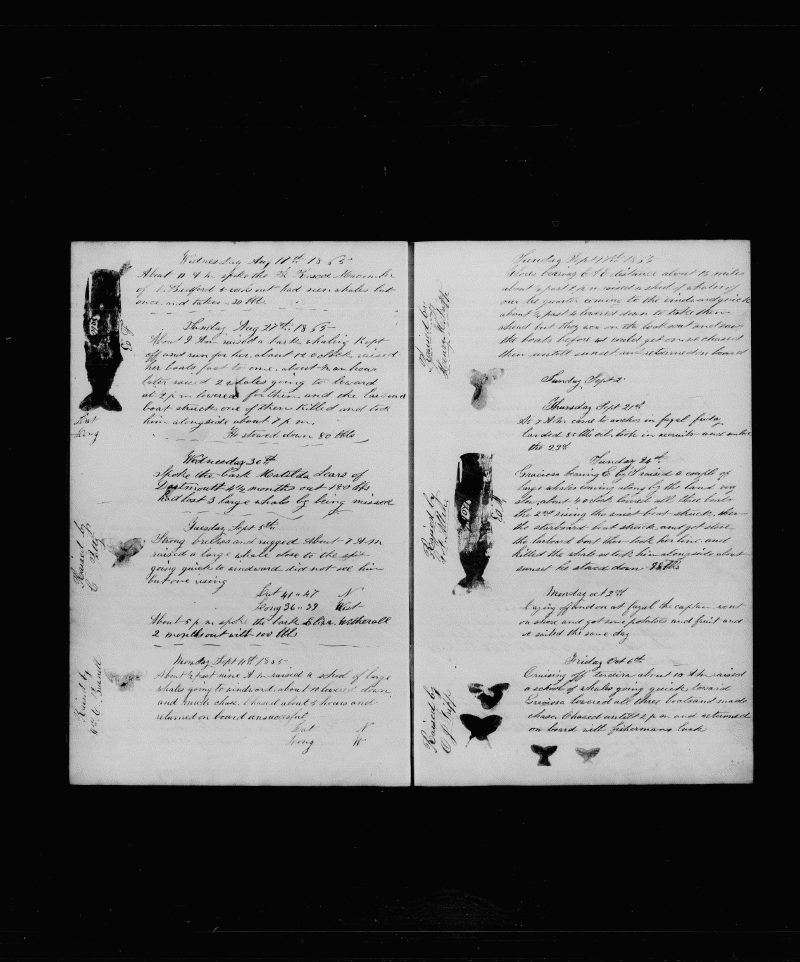 Wednesday Aug 16th 1865
About 11 A m spoke the Sh Roscoe Macomber
of N. Bedford 4 weeks out had seen whales but
once and taken 20 bbls
Sunday Aug 27th 1865
About 9 A m raised a bark whaling Kept
off and run for her about 12 oclock raised
her boats fast to one, about an hour
later raised 2 whales going to leward
at 2 p m lowered for them and the larboard
boat struck one of them Killed and took
him alongside about 7 p m.
He stowed down 80 bbls
E F
Lat
Long
Wednesday 30th
Spoke the bark Matilda Sears of
Dartmouth 4½ months out 180 bbls
had lost 3 large whale by being missed
Tuesday Sept 5th
Strong breezes and rugged About 7 A M
raised a large whale close to the ship
going quick to windward did not see him
but one rising
Lat 41-47 N
Long 36-39 West
About 5 p m spoke the bark Eliza Wetherall
2 months out with 100 bbls
Raised by
Monday Sept 11th 1865
About ½ past nine A m raised a school of large
whales going to windward about 10 lowered down
and made chase Chased about 5 hours and
returned on board unsuccessful
Lat N
Long W
Raised by
Wm C
Sunday Sept 17th 1865
Flores bearing distance about 12 miles
about ½ past 2 p m raised a school of whales off
our lee quarter coming to the windward quick
about ½ past 4 lowered down to take them
ahead but they was on the look out and saw
the boats before we could get on so chased
them untill sunset and returned on board
Raised by
Henry
Sunday Sept 2
Thursday Sept 21st
At 7 A m came to anchor in fayal
landed 80 bbls oil took in recruits and
the 23d
Sunday 24th
Graciosa bearing raised a couple of
large whales coming along by the land very
slow about 9 oclock lowered all three boats
the 2nd rising the waist boat struck then
the starboard boat struck and got stove
the larboard boat then took her line and
killed the whale and took him alongside about
sunset he stowed down 98 bbls
E F
Raised by
Monday oct 2nd
Laying off and on at fayal the captain went
on shore and got some potatoes and fruit and
we sailed the same day
Friday Oct 6th
Cruising off tercira about 10 A m raised
a school of whales going quick toward
Graciosa lowered all three boats and made
chase Chased untill 2 p m and returned
on board with fishermans luck
Raised by
C J